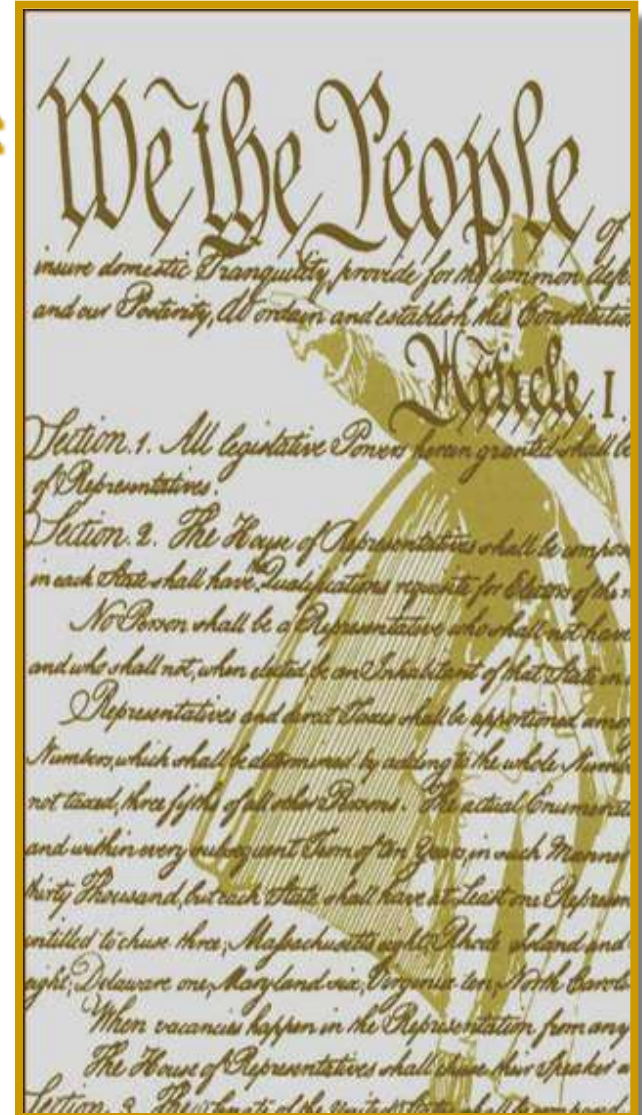 We the People of
insure domestic Tranquility, provide for the common defe
and our Posterity, do ordain and establish this Constitution
Article. I.
Section. 1. All legislative Powers herein granted shall be
of Representatives.
Section. 2. The House of Representatives shall be compose
in each State shall have the Qualifications requisite for Electors of the
No Person shall be a Representative who shall not have
and who shall not, when elected, be an Inhabitant of that State in
Representatives and direct Taxes shall be apportioned among
Numbers, which shall be determined by adding to the whole Number
not taxed, three fifths of all other Persons. The actual Enumerat
and within every subsequent Term of ten Years, in such Manner
thirty Thousand, but each State shall have at Least one Represen
entitled to chuse three, Massachusetts eight, Rhode Island and
eight, Delaware one, Maryland six, Virginia ten, North Carol
When vacancies happen in the Representation from any
The House of Representatives shall chuse their Speaker
Section. 3. The Senate of the United States shall be composed